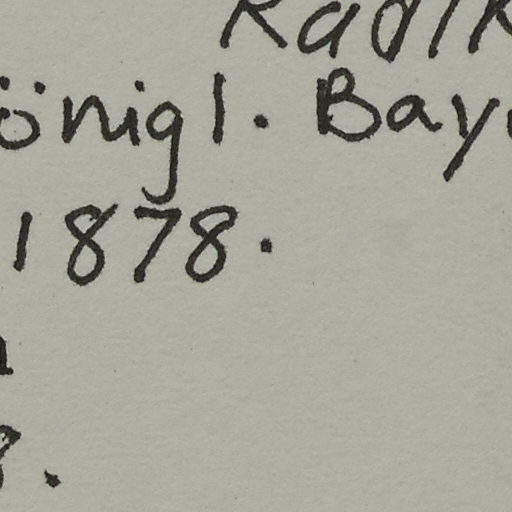 Radik
önigl. Bay
1878.
8.